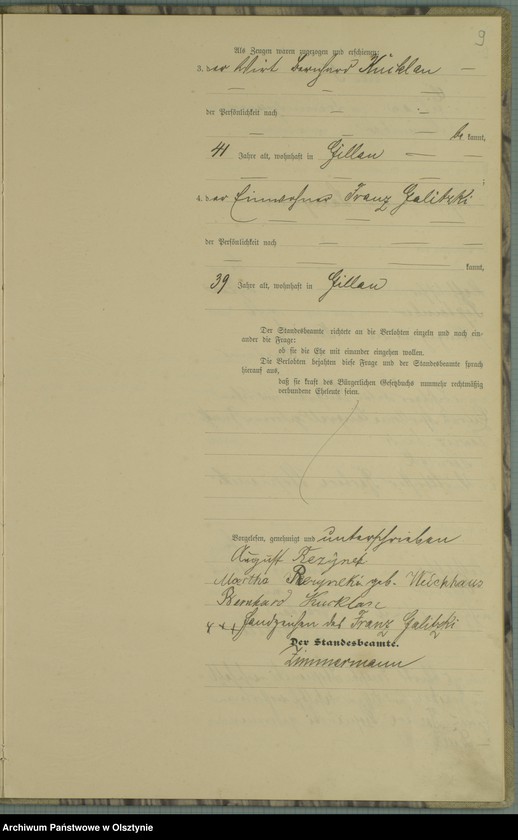 9
Als Zeugen waren zugezogen und erschienen:
3. der Wirt Bernhard Kucklan —
— — —
der Persönlichkeit nach — —
— — — be kannt,
41 Jahre alt, wohnhaft in Gillau — —
— — — ;
4. der Einwohner Franz Galitzki
— —
der Persönlichkeit nach — —
— — — kannt,
39 Jahre alt, wohnhaft in Gillau
Der Standesbeamte richtete an die Verlobten einzeln und nach ein-
ander die Frage:
ob sie die Ehe mit einander eingehen wollen.
Die Verlobten bejahten diese Frage und der Standesbeamte sprach
hierauf aus,
daß sie kraft des Bürgerlichen Gesetzbuchs nunmehr rechtmäßig
verbundene Eheleute seien.
Vorgelesen, genehmigt und unterschrieben
August
Martha geb.
Bernhard Kucklan
+++ Handzeichen des Franz Galitzki
Der Standesbeamte.
Zimmermann
Archiwum Państwowe w Olsztynie